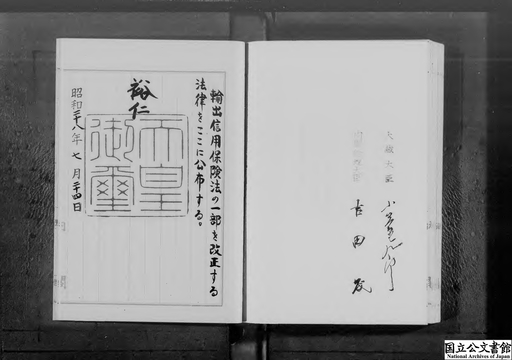 大蔵大臣 小笠原三九郎
吉田茂
輸出信用保険法の一部を改正する
法律をここに公布する。
裕仁
天皇
御璽
昭和二十八年七月二十四日
国立公文書館
National Archives of Japan